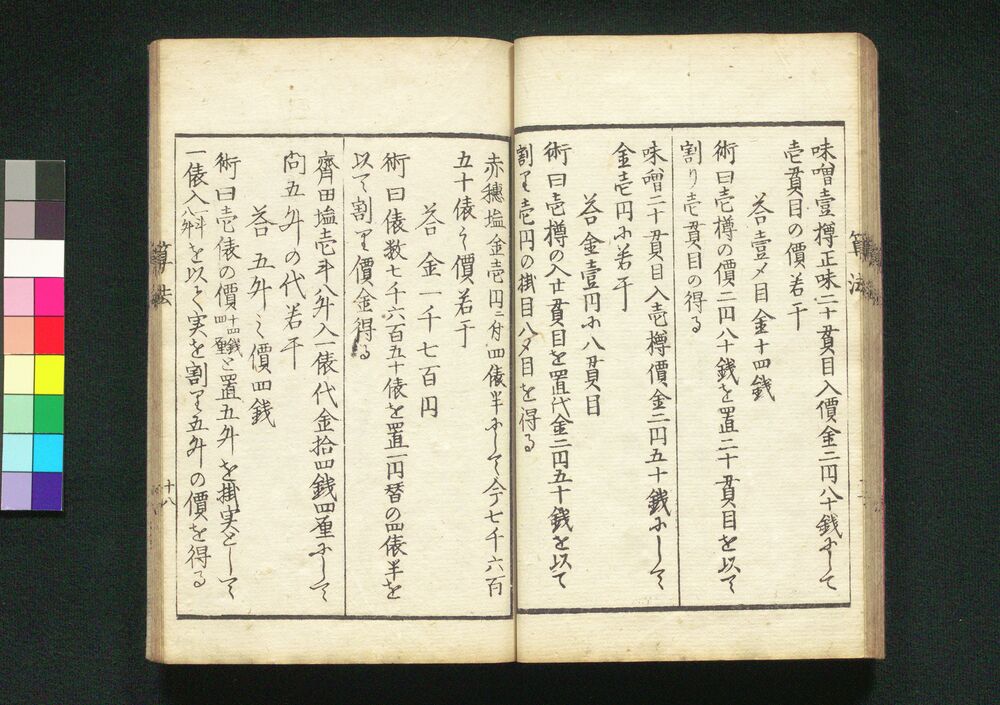 味噌壹樽正味二十貫目入價金二円八十銭にして
壱貫目の價若干
答壹〆目金十四銭
術曰壱樽の價二円八十銭を置二十貫目を以て
割り壱貫目の得る
味噌二十貫目入壱樽價金二円五十銭にして
金壱円に若干
答金壹円に八貫目
術曰壱樽の入廿貫目を置代金二円五十銭を以て
割り壱円の掛目八〆目を得る
算法
赤穂塩金壱円ニ付四俵半にして今七千六百
五十俵之價若干
答金一千七百円
術曰俵数七千六百五十俵を置一円替の四俵半を
以て割り價金得る
齊田塩壱斗八舛入一俵代金拾四銭四厘にして
問五舛の代若干
答五舛之價四銭
術曰壱俵の價十四銭四厘と置五舛を掛実として
一俵入一斗八舛を以て実を割り五舛の價を得る
算法
十八